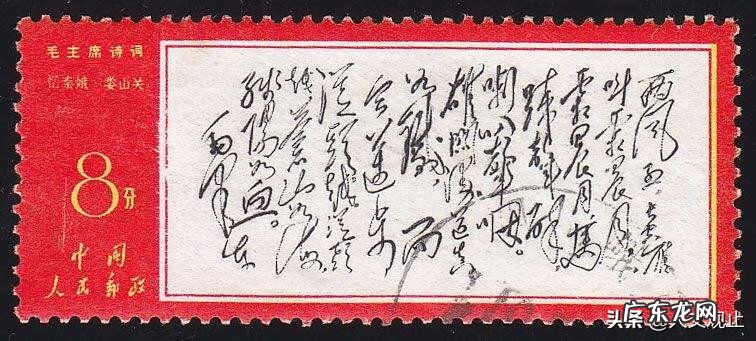 毛主席诗词
忆秦娥·娄山关
8分
中国
人民邮政
西风烈,长空雁
叫霜晨月。
霜晨月,马
蹄声碎,
喇叭声咽。
雄关漫道真
如铁,而
今迈步
从头越,从头
越苍山如海,
残阳如血。
毛泽东
头条
东龙网
观止